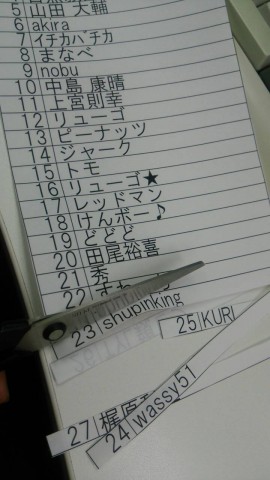 5 山田 大輔
6 akira
7 イチカバチカ
8 まなべ
9 nobu
10 中島 康晴
11 上宮則幸
12 リューゴ
13 ピーナッツ
14 ジャーク
15 トモ
16 リューゴ★
17 レッドマン
18 けんボー♪
19 どどど
20 田尾裕喜
21 秀
22
23 shupinking
25 KURI
24 wassy51
27 梶原